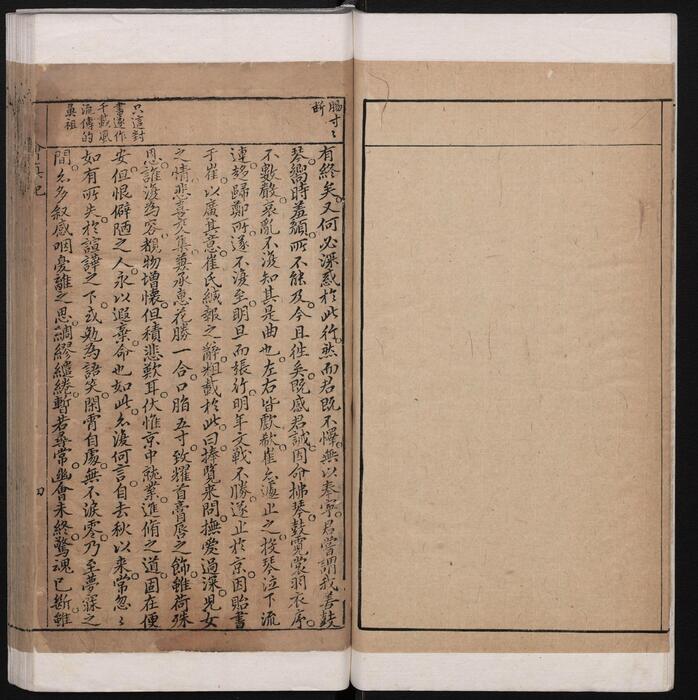 腸寸〻
斷
有終矣又何必深感於此行然而君既不懌無以奉寧君嘗謂我善鼓
琴嚮時羞顏所不能及今且往矣既感君誠因命拂琴鼓霓裳羽衣序
不數聲哀亂不復知其是曲也左右皆歔欷崔亦遽止之投琴泣下流
連趍歸鄭所遂不復至明旦而張行明年文戰不勝遂止於京因貽書
于崔以廣其意崔氏緘報之辭粗載於此曰捧覽來問撫愛過深兒女
之情悲喜交集兼承惠花勝一合口脂五寸致耀首膏唇之飾雖荷殊
恩誰復為容覩物增懷但積悲歎耳伏惟京中就業進脩之道固在便
安但恨僻陋之人永以遐棄命也如此亦復何言自去秋以來常忽〻
如有所失於諠譁之下或勉為語笑閑宵自處無不淚零乃至夢寐之
間亦多叙感咽憂離之思綢繆繾綣暫若尋常幽會未終驚魂已斷雖
只這封
書遂作
千載風
流傳的
奠祖
會真記
四